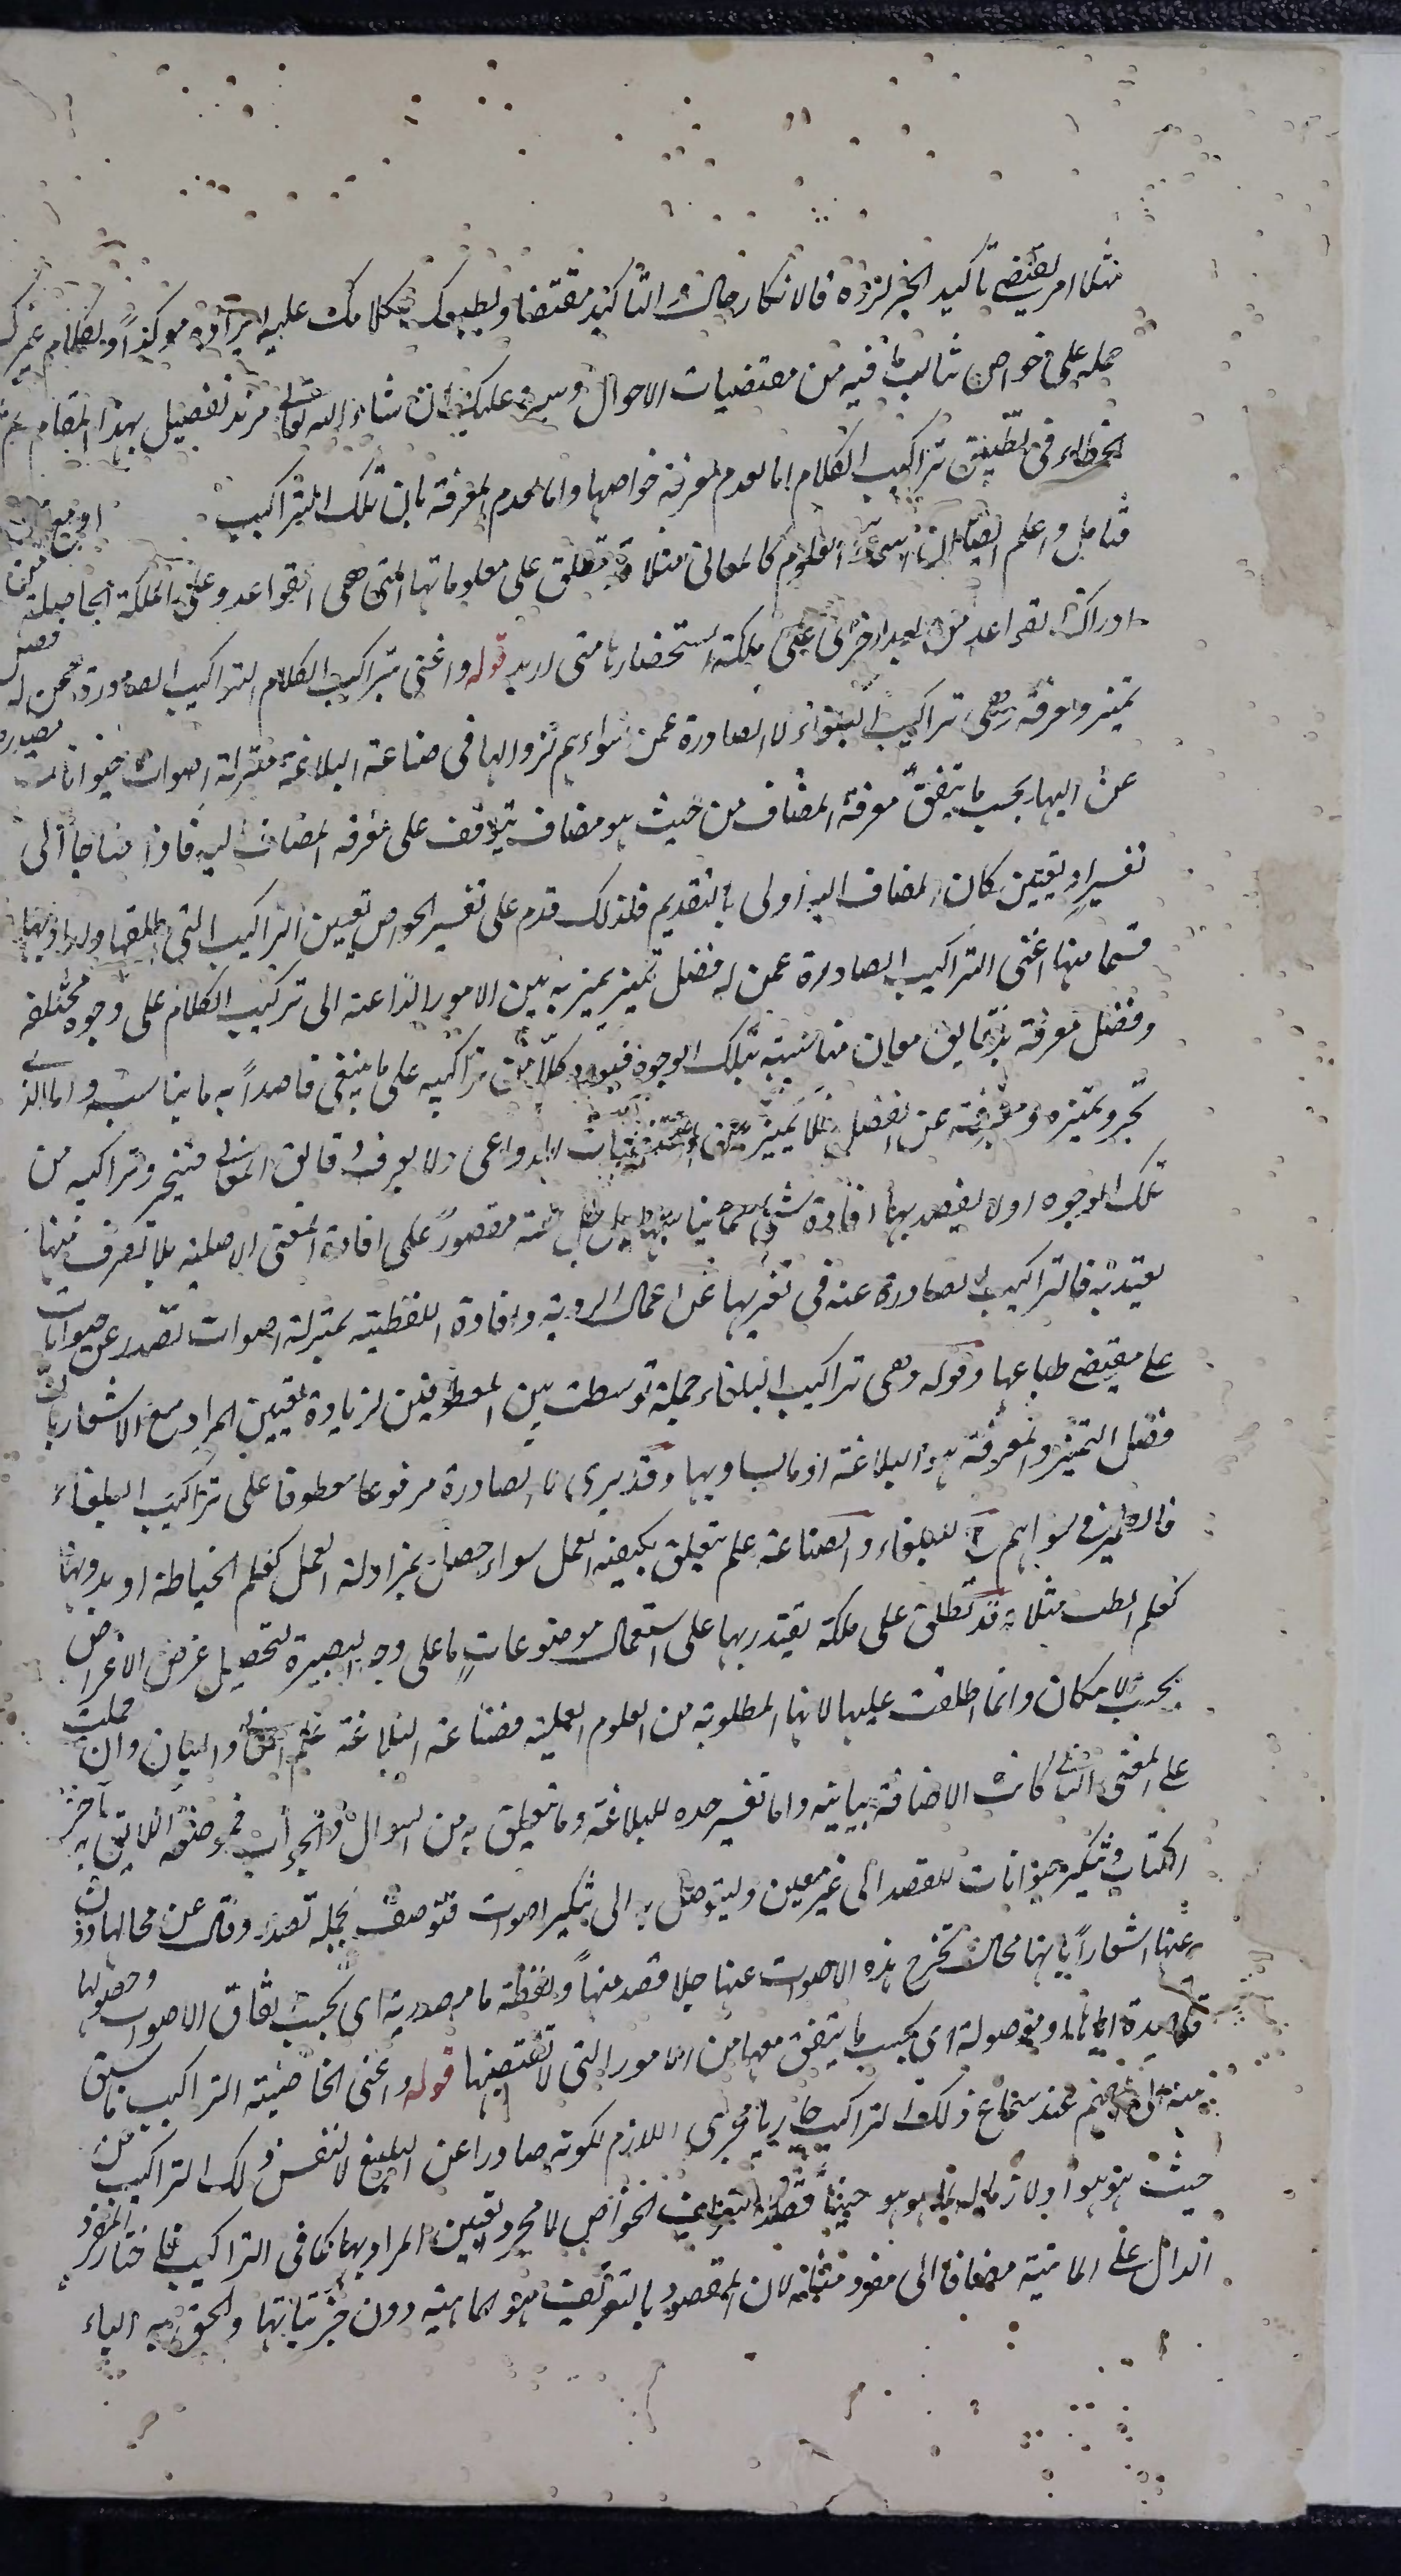 مثلا امر يقتضى تأكيد الخبر لزوه فالانكار حال والتأكيد مقتضا وتطبيق كلامك عليه ايراده موكدًا وبكلام غيرك
حمله على خواص شاملت فيه من مقتضيات الاحوال وسيرد عليك ان شاء الله تعالى مزيد تفصيل بهذا المقام ثم
الخطاء فى تطبيق تراكيب الكلام اما لعدم معرفة خواصها واما لعدم المعرفة بان تلك التراكيب
فتامل واعلم ايضا ان اسماء العلوم كالمعانى مثلا قد تطلق على معلوماتها التى هى القواعد وعلى الملكة الحاصلة من
ادراك القواعد مرة بعد اخرى اعنى ملكة استحضارها متى اريد قوله واعنى بتراكيب الكلام التراكيب الصادرة عمن له فضل
تميز ومعرفة وهى تراكيب البلغاء لا الصادرة عمن سواهم لنزولها فى صناعة البلاغة منزلة اصوات حيوانات تصدر
عن محالها بحسب ما يتفق معرفة المضاف من حيث هو مضاف يتوقف على معرفة المضاف اليه فاذا احتاجا الى
تفسير وتعيين كان المضاف اليه اولى بالتقديم فلذلك قدم على تفسير الخواص تعيين التراكيب التى اطلقها واراد بها
قسما منها اعنى التراكيب الصادرة عمن له فضل تميز يميز به بين الامور الداعية الى تركيب الكلام على وجوه مختلفة
وفضل معرفة بدقايق معان مناسبة بتلك الوجوه فيورد كلا من تراكيبه على ما ينبغى قاصداً به ما يناسبه واما الذى
تجرد تميزه ومعرفته عن الفضل فلا يميز بين مقتضيات الدواعى ولا يعرف دقايق المعانى فتجرد تراكيبه من
تلك الوجوه او لا يقصد بها افادة شئ مما يناسبها بل همته مقصورة على افادة المعنى الاصلية بلا تصرف فيها
يعتد به فالتراكيب الصادرة عنه فى تعريها عن اعمال الروية وافادة اللفظية بمنزلة اصوات تصدر عن حيوانات
على مقتضى طباعها وقوله وهى تراكيب البلغاء جملة توسطت بين المعطوفين لزيادة تعيين المراد مع الاشعار بان
فضل التميز والمعرفة هو البلاغة او ما يساويها وقد يروى لا الصادرة مرفوعا معطوفا على تراكيب البلغاء
فالضمير فى سواهم للبلغاء والصناعة علم يتعلق بكيفية العمل سواء حصل بمزاولة العمل كعلم الخياطة او بدونها
كعلم الطب مثلا وقد تطلق على ملكة يقتدر بها على استعمال موضوعات ما على وجه البصيرة لتحصيل غرض من الاغراض
بحسب الامكان وانما اطلقت عليها لانها المطلوبة من العلوم العملية فصناعة البلاغة علم المعانى والبيان وان حملت
على المعنى الثانى كانت الاضافة بيانية واما تفسير حده للبلاغة وما يتعلق به من السوال والجواب فموضعه اللايق به آخر
الكتاب وتنكير حيوانات للقصد الى غير معين وليتوصل به الى تنكير اصوات فتوصف بجملة تصدر وقال عن محالها دون
عنها اشعاراً بانها محال تخرج هذه الاصوات عنها بلا قصد منها ولفظة ما مصدرية اى بحسب اتفاق الاصوات وحصولها
او موصولة اى بحسب ما يتفق معها من الامور التى لا تقتضيها قوله واعنى الخاصية التراكيب ما يسبق
منه الى الفهم عند سماع ذلك التراكيب جاريا مجرى اللازم لكونه صادرا عن البليغ لا لنفس ذلك التراكيب من
حيث هو هو او لازما له لما هو هو حينا قصد تعريف الخواص لا مجرد تعيين المراد بها كما فى التراكيب فاختار المفرد
الدال على الماهية مضافا الى مفرد مثله لان المقصود بالتعريف هو الماهية دون جزئياتها والحق به الياء